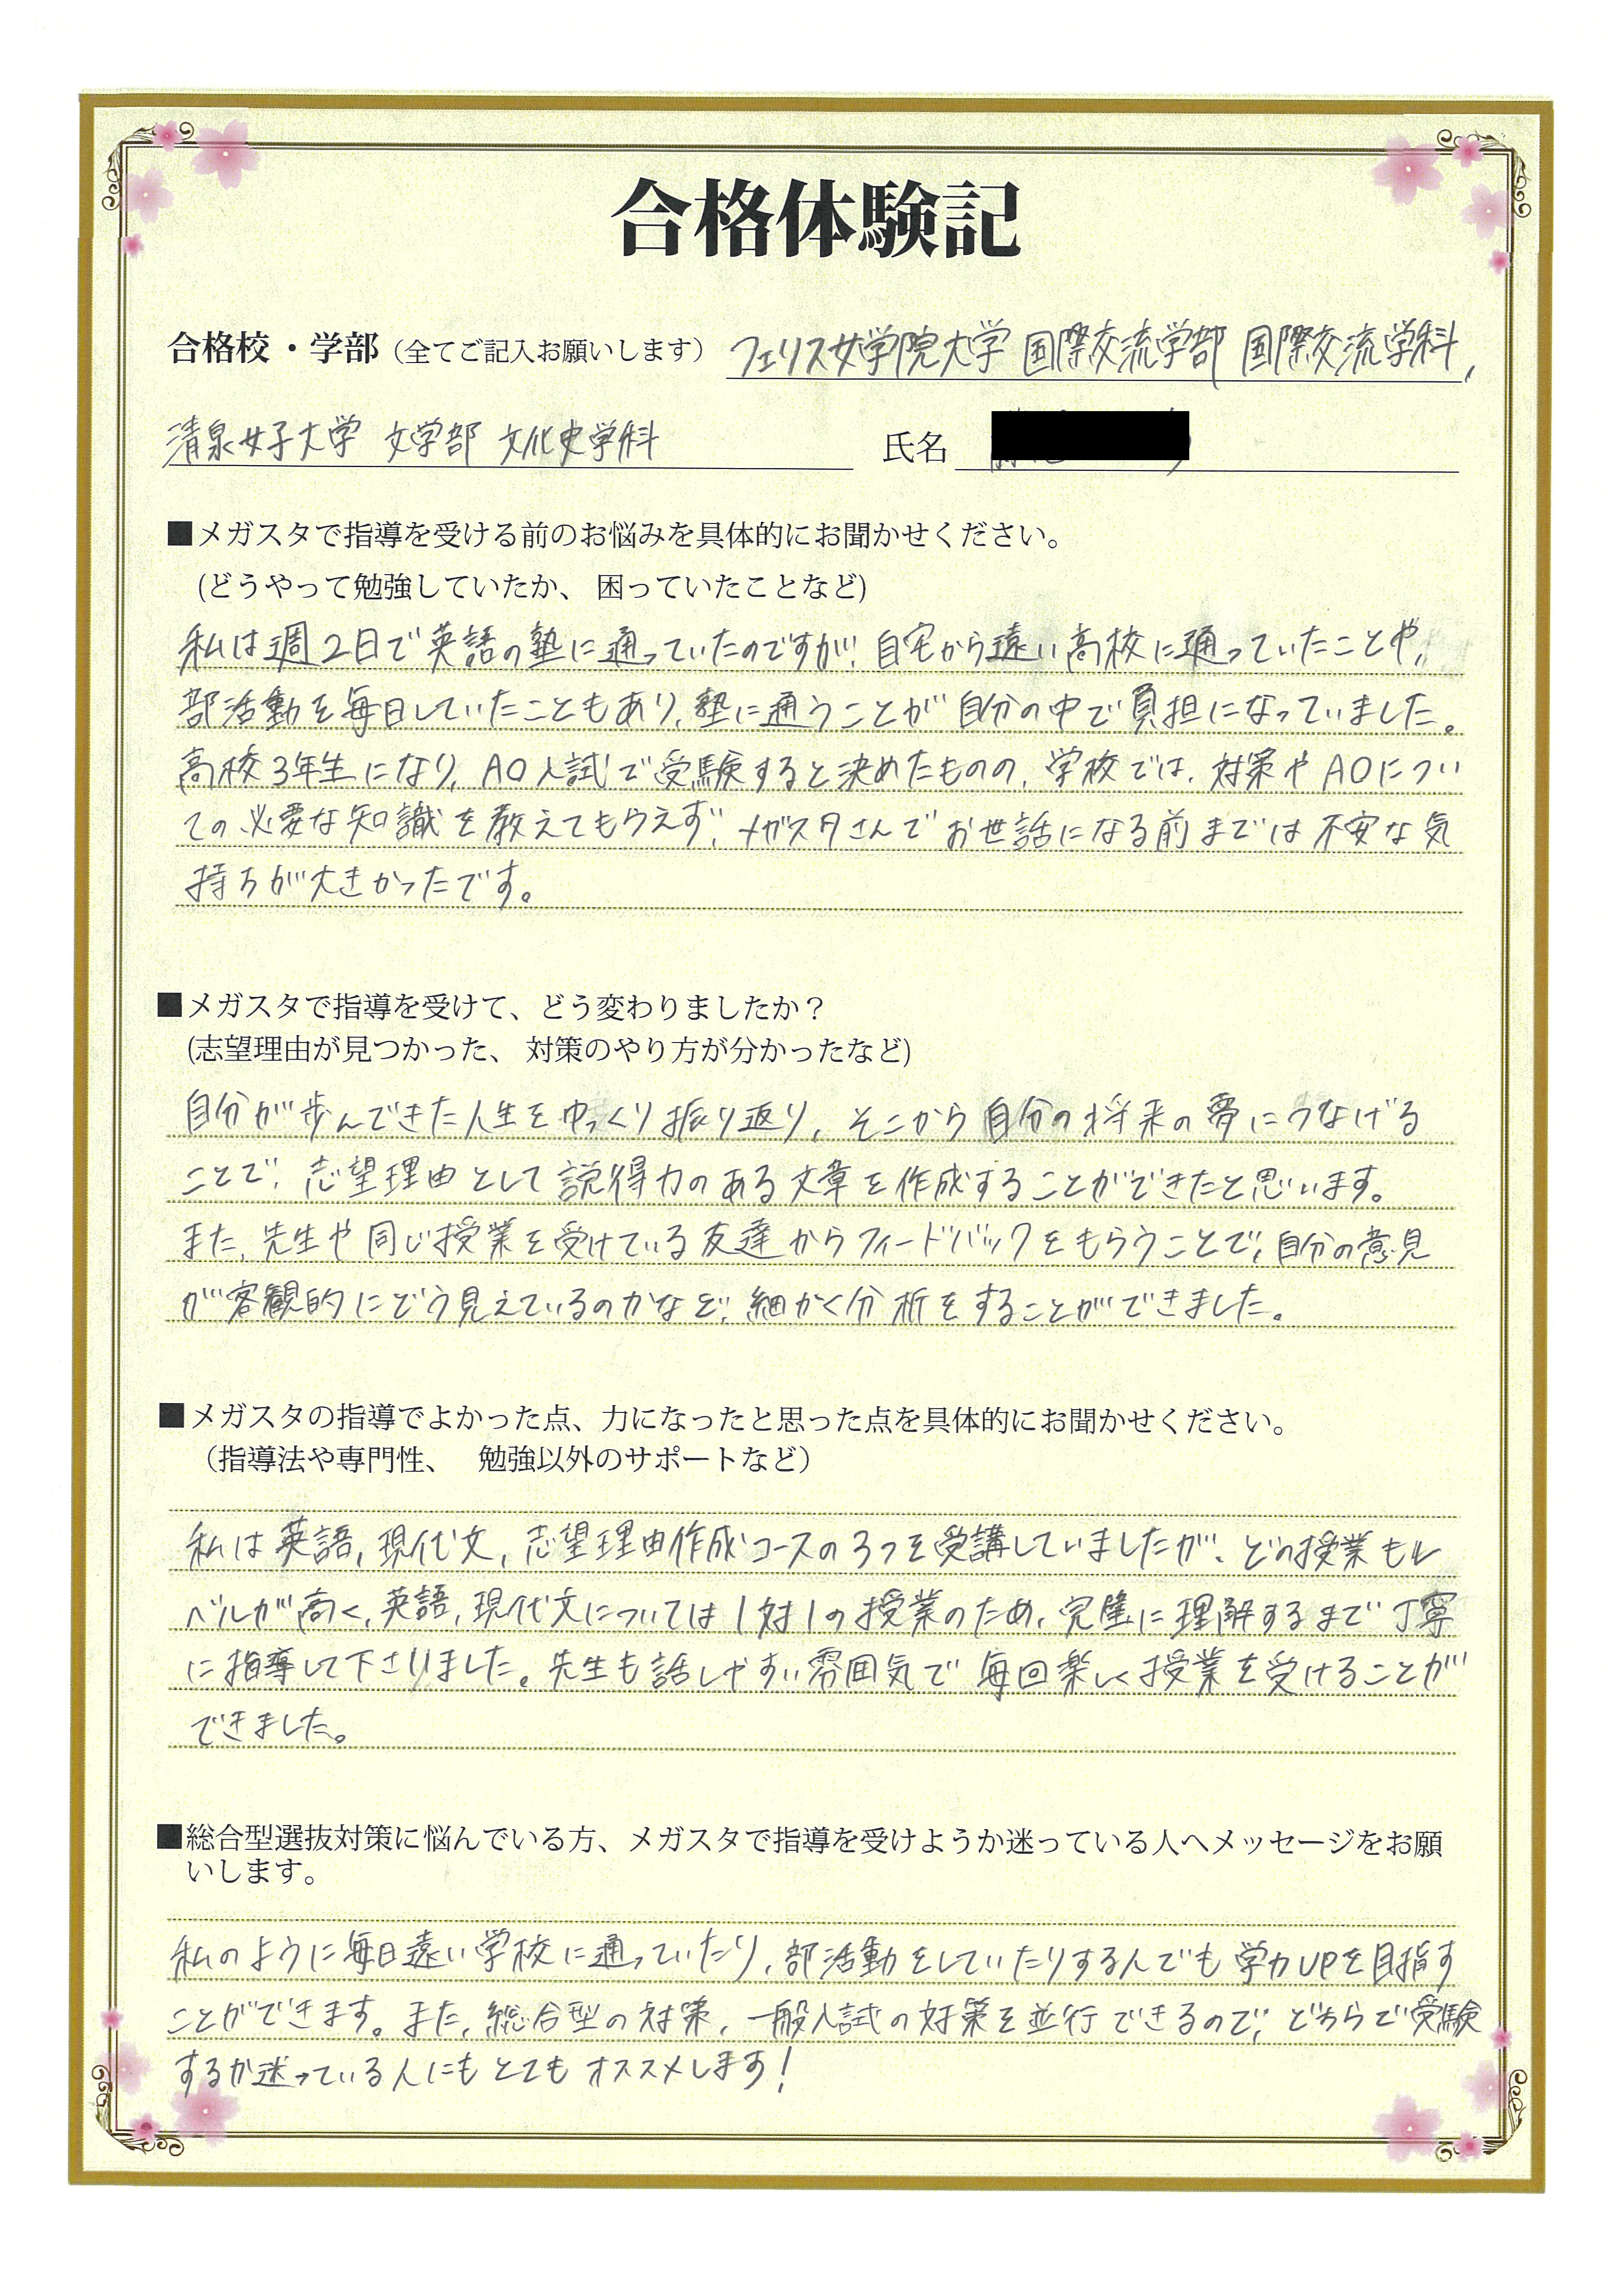 合格体験記
合格校・学部（全てご記入お願いします） フェリス女学院大学 国際交流学部 国際交流学科,
清泉女子大学 文学部 文化史学科 氏名
■メガスタで指導を受ける前のお悩みを具体的にお聞かせください。
(どうやって勉強していたか、 困っていたことなど)
私は週2日で英語の塾に通っていたのですが、自宅から遠い高校に通っていたことや、
部活動を毎日していたこともあり、塾に通うことが自分の中で負担になっていました。
高校3年生になり、AO入試で受験すると決めたものの、学校では、対策やAOについ
ての必要な知識を教えてもらえず、メガスタさんでお世話になる前までは不安な気
持ちが大きかったです。
■メガスタで指導を受けて、どう変わりましたか？
(志望理由が見つかった、 対策のやり方が分かったなど)
自分が歩んできた人生をゆっくり振り返り、そこから自分の将来の夢につなげる
ことで、志望理由として説得力のある文章を作成することができたと思います。
また、先生や同じ授業を受けている友達からフィードバックをもらうことで、自分の意見
が客観的にどう見えているのかなど、細かく分析をすることができました。
■メガスタの指導でよかった点、力になったと思った点を具体的にお聞かせください。
（指導法や専門性、 勉強以外のサポートなど）
私は英語,現代文,志望理由作成コースの3つを受講していましたが、どの授業もレ
ベルが高く、英語,現代文については1対1の授業のため、完璧に理解するまで丁寧
に指導して下さりました。先生も話しやすい雰囲気で毎回楽しく授業を受けることが
できました。
■総合型選抜対策に悩んでいる方、メガスタで指導を受けようか迷っている人へメッセージをお願
いします。
私のように毎日遠い学校に通っていたり、部活動をしていたりする人でも学力UPを目指す
ことができます。また、総合型の対策、一般入試の対策を並行できるので、どちらで受験
するか迷っている人にもとてもオススメします！